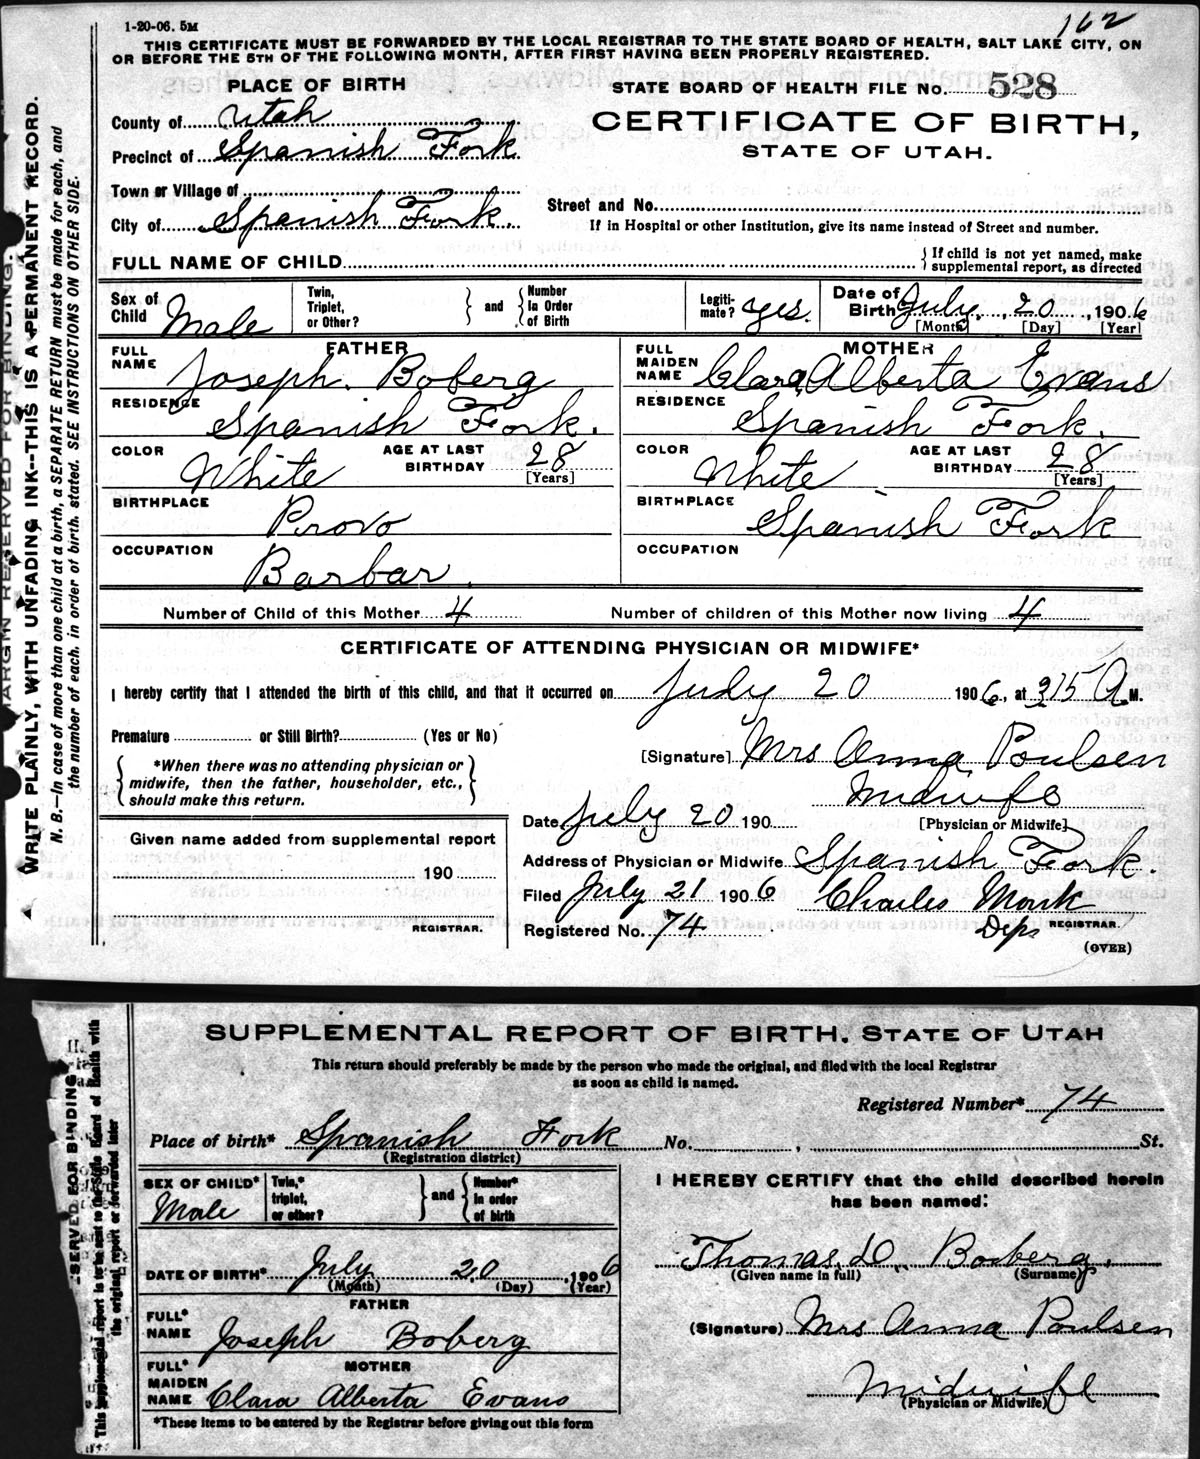 1-20-06. 5M
162
THIS CERTIFICATE MUST BE FORWARDED BY THE LOCAL REGISTRAR TO THE STATE BOARD OF HEALTH, SALT LAKE CITY, ON
OR BEFORE THE 5TH OF THE FOLLOWING MONTH, AFTER FIRST HAVING BEEN PROPERLY REGISTERED.
PLACE OF BIRTH
STATE BOARD OF HEALTH FILE No. 528
County of Utah
CERTIFICATE OF BIRTH,
Precinct of Spanish Fork
STATE OF UTAH.
Town or Village of
Street and No.
City of Spanish Fork.
If in Hospital or other Institution, give its name instead of Street and number.
FULL NAME OF CHILD
{ If child is not yet named, make
supplemental report, as directed
Sex of Child Male
Twin, Triplet, or Other? } and { Number In Order of Birth
Legiti- mate? yes.
Date of Birth July 20, 1906
[Month] [Day] [Year]
FATHER
FULL NAME Joseph. Boberg
RESIDENCE Spanish Fork.
COLOR White
AGE AT LAST BIRTHDAY 28 [Years]
BIRTHPLACE Provo
OCCUPATION Barbar.
MOTHER
FULL MAIDEN NAME Clara Alberta Evans
RESIDENCE Spanish Fork.
COLOR White
AGE AT LAST BIRTHDAY 28 [Years]
BIRTHPLACE Spanish Fork
OCCUPATION
Number of Child of this Mother 4 Number of children of this Mother now living 4
CERTIFICATE OF ATTENDING PHYSICIAN OR MIDWIFE*
I hereby certify that I attended the birth of this child, and that it occurred on July 20 1906, at 315 A M.
Premature or Still Birth? (Yes or No)
[Signature] Mrs Anna Poulsen
{ *When there was no attending physician or
midwife, then the father, householder, etc.,
should make this return. }
Midwife
[Physician or Midwife]
Date July 20 190
Given name added from supplemental report
190
REGISTRAR.
Address of Physician or Midwife Spanish Fork.
Filed July 21 1906 Charles Monk
Registered No. 74 Dep REGISTRAR.
(OVER)
MARGIN RESERVED FOR BINDING.
WRITE PLAINLY, WITH UNFADING INK--THIS IS A PERMANENT RECORD.
N. B.—In case of more than one child at a birth, a SEPARATE RETURN must be made for each, and
the number of each, in order of birth, stated. SEE INSTRUCTIONS ON OTHER SIDE.
SUPPLEMENTAL REPORT OF BIRTH. STATE OF UTAH
This return should preferably be made by the person who made the original, and filed with the local Registrar
as soon as child is named.
Registered Number* 74
Place of birth* Spanish Fork No. , St.
(Registration district)
SEX OF CHILD* Male
Twin,* triplet, or other? } and { Number* In order of birth
I HEREBY CERTIFY that the child described herein
has been named:
DATE OF BIRTH* July 20, 1906
(Month) (Day) (Year)
Thomas D. Boberg.
(Given name in full) (Surname)
FATHER
FULL* NAME Joseph Boberg
(Signature) Mrs Anna Poulsen
MOTHER
FULL* MAIDEN NAME Clara Alberta Evans
Midwife
(Physician or Midwife)
*These items to be entered by the Registrar before giving out this form
SERVED FOR BINDING
This supplemental report is to be sent to the State Board of Health with
the original report or forwarded later